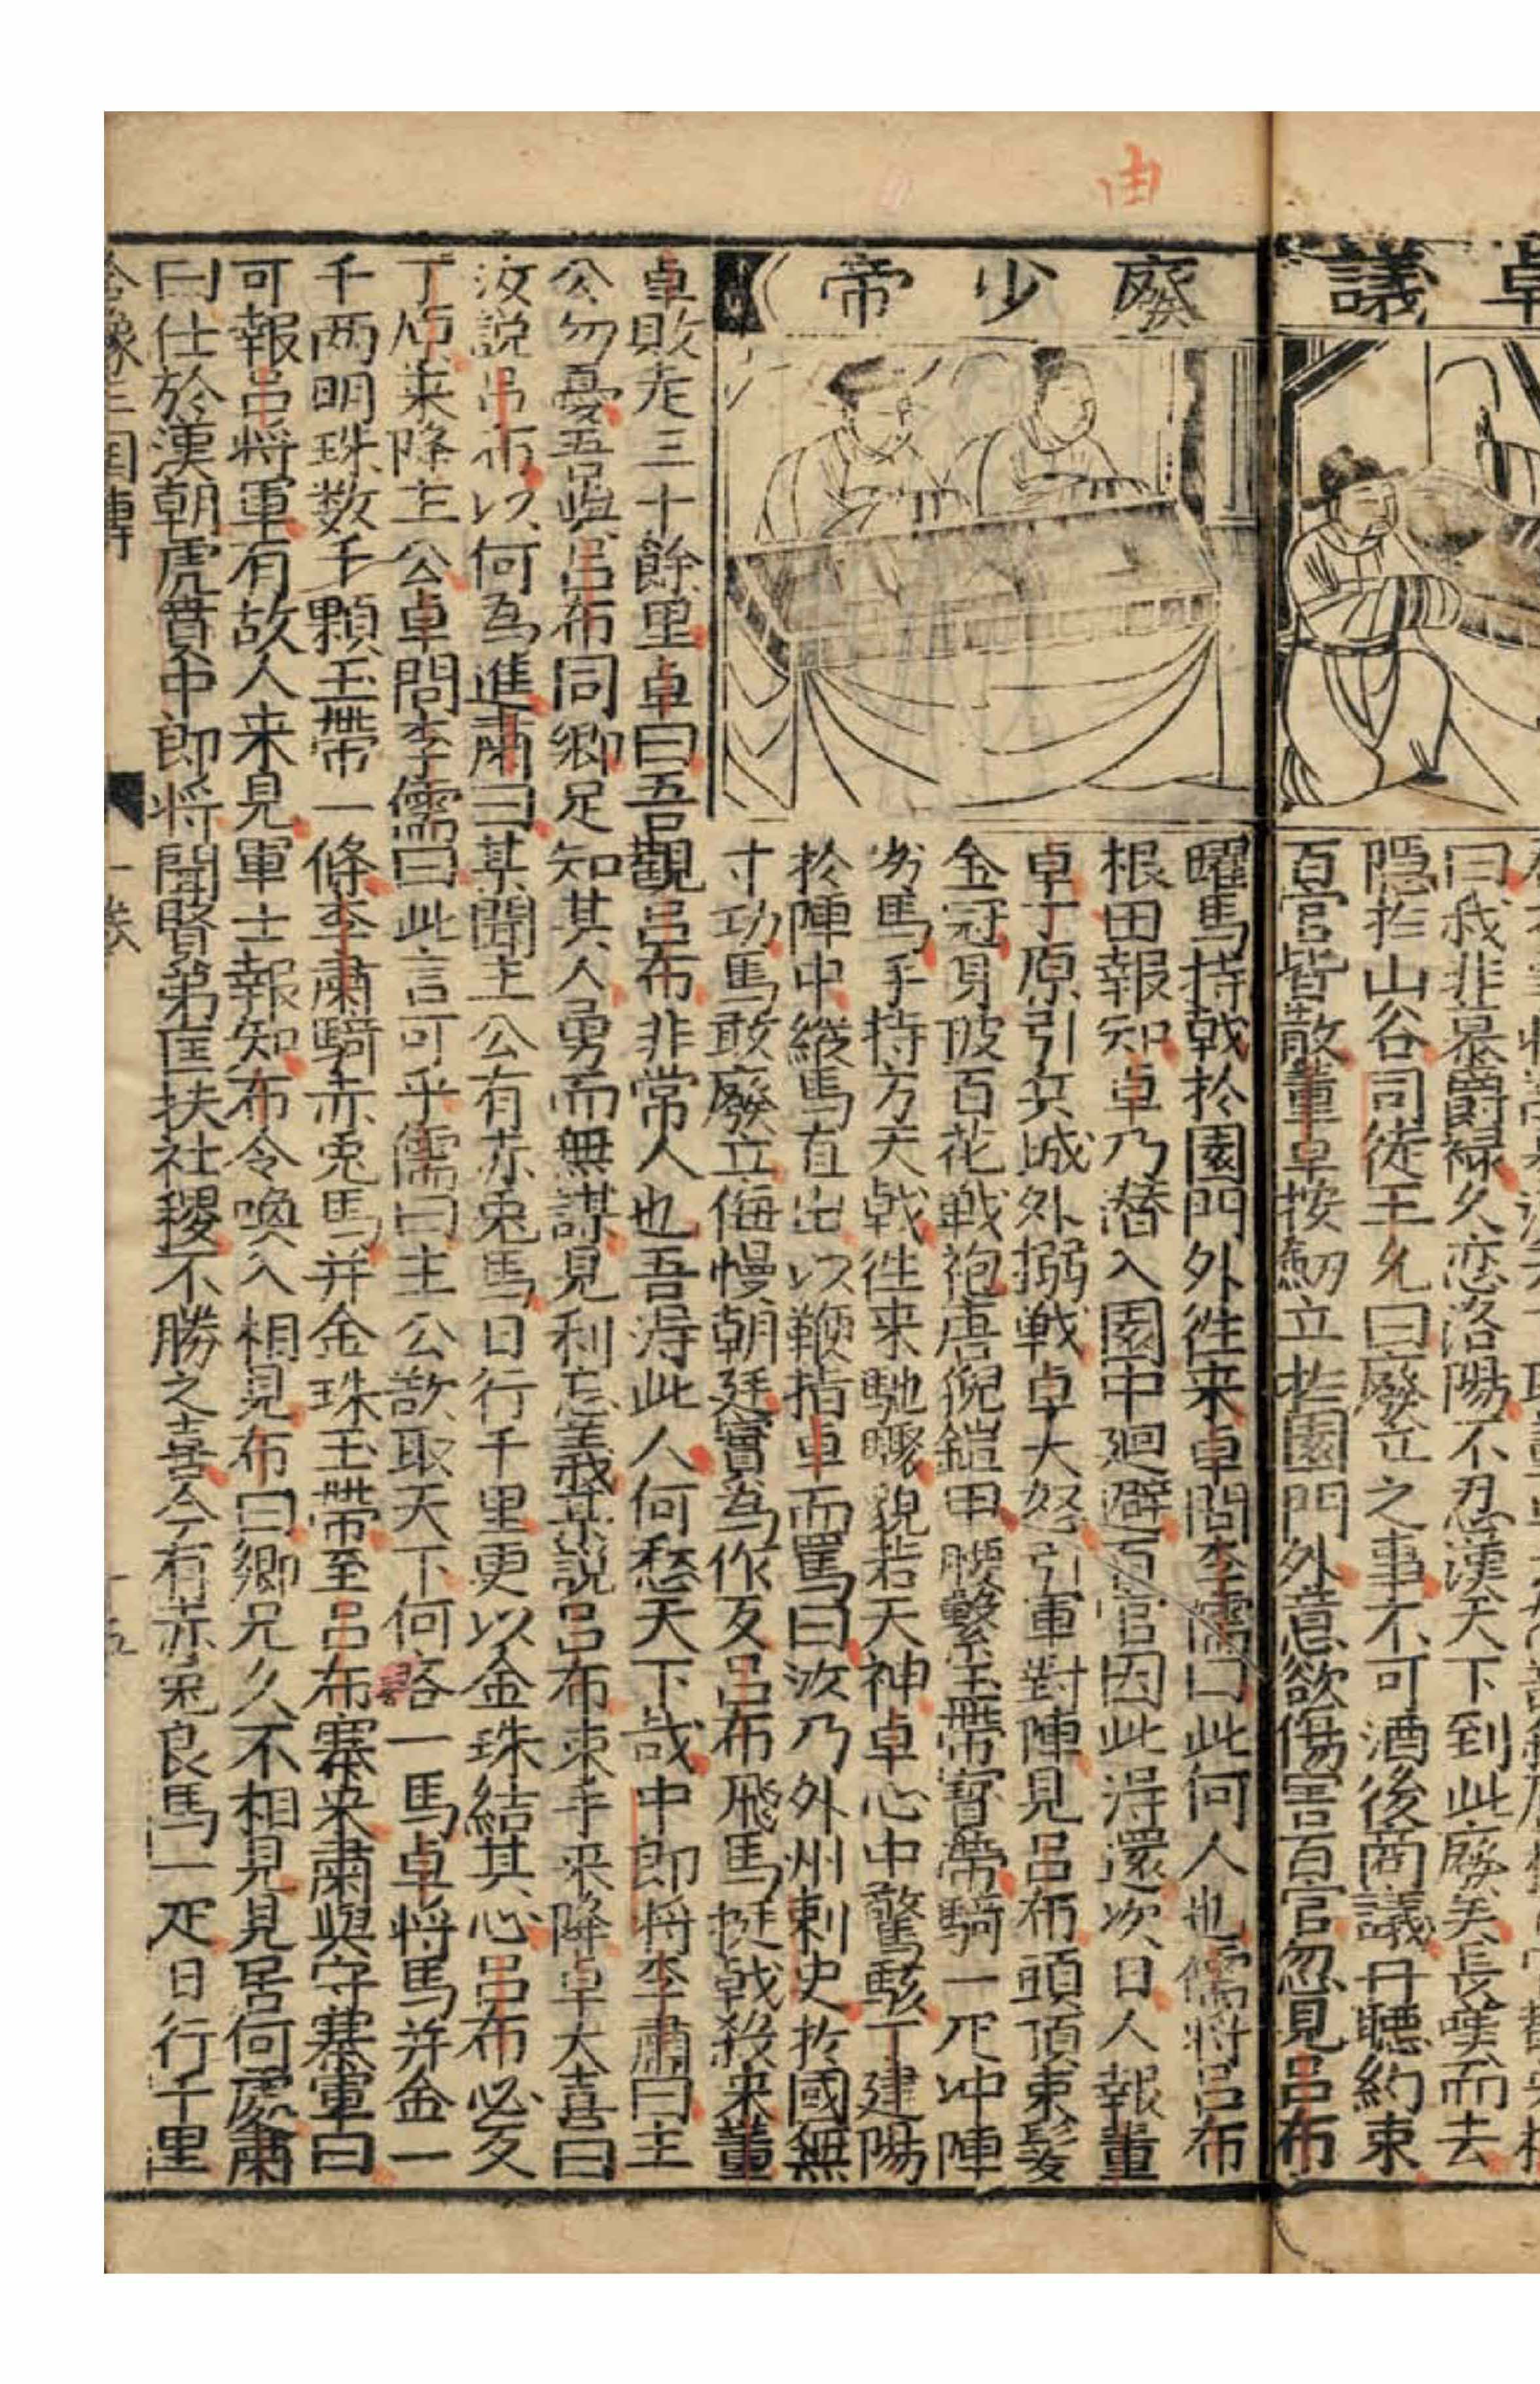 卓議
曰我非慕爵禄久恋洛陽不忍漢天下到此廢矣長嘆而去
隠於山谷司徒王允曰廢立之事不可酒後商議再聽約束
百官皆散董卓按劍立於園門外意欲傷害百官忽見呂布
廢少帝
曜馬持戟於園門外徃来卓問李儒曰此何人也儒將呂布
根田報知卓乃潜入園中廻避百官因此淂還次日人報董
卓丁原引兵城外搦戦卓大怒引軍對陣見呂布頭頂束髪
金冠身披百花戦袍唐猊鎧甲腰繫玉帶寳帶騎一疋冲陣
劣馬手持方天戟徃来馳驟貌若天神卓心中驚駭丁建陽
於陣中縱馬直出以鞭指卓而罵曰汝乃外州刺史於國無
寸功馬敢廢立侮慢朝廷實為作反呂布飛馬挺戟殺来董
卓敗走三十餘里卓曰吾觀呂布非常人也吾淂此人何愁天下哉中郎将李肅曰主
公勿憂吾與呂布同郷足知其人勇而無謀見利忘義某説呂布束手来降卓大喜曰
汝説呂布以何為進肅曰某聞主公有赤兎馬日行千里更以金珠結其心呂布必反
丁原来降主公卓問李儒曰此言可乎儒曰主公欲取天下何吝一馬卓将馬并金一
千两明珠数千顆玉帶一條李肅騎赤兎馬并金珠玉帶至呂布寨来肅與守寨軍曰
可報呂将軍有故人来見軍士報知布令喚入相見布曰郷兄久不相見見居何處肅
曰仕於漢朝虎賁中郎将聞賢弟匡扶社稷不勝之喜今有赤兎良馬一疋日行千里
全像三国傳 一卷